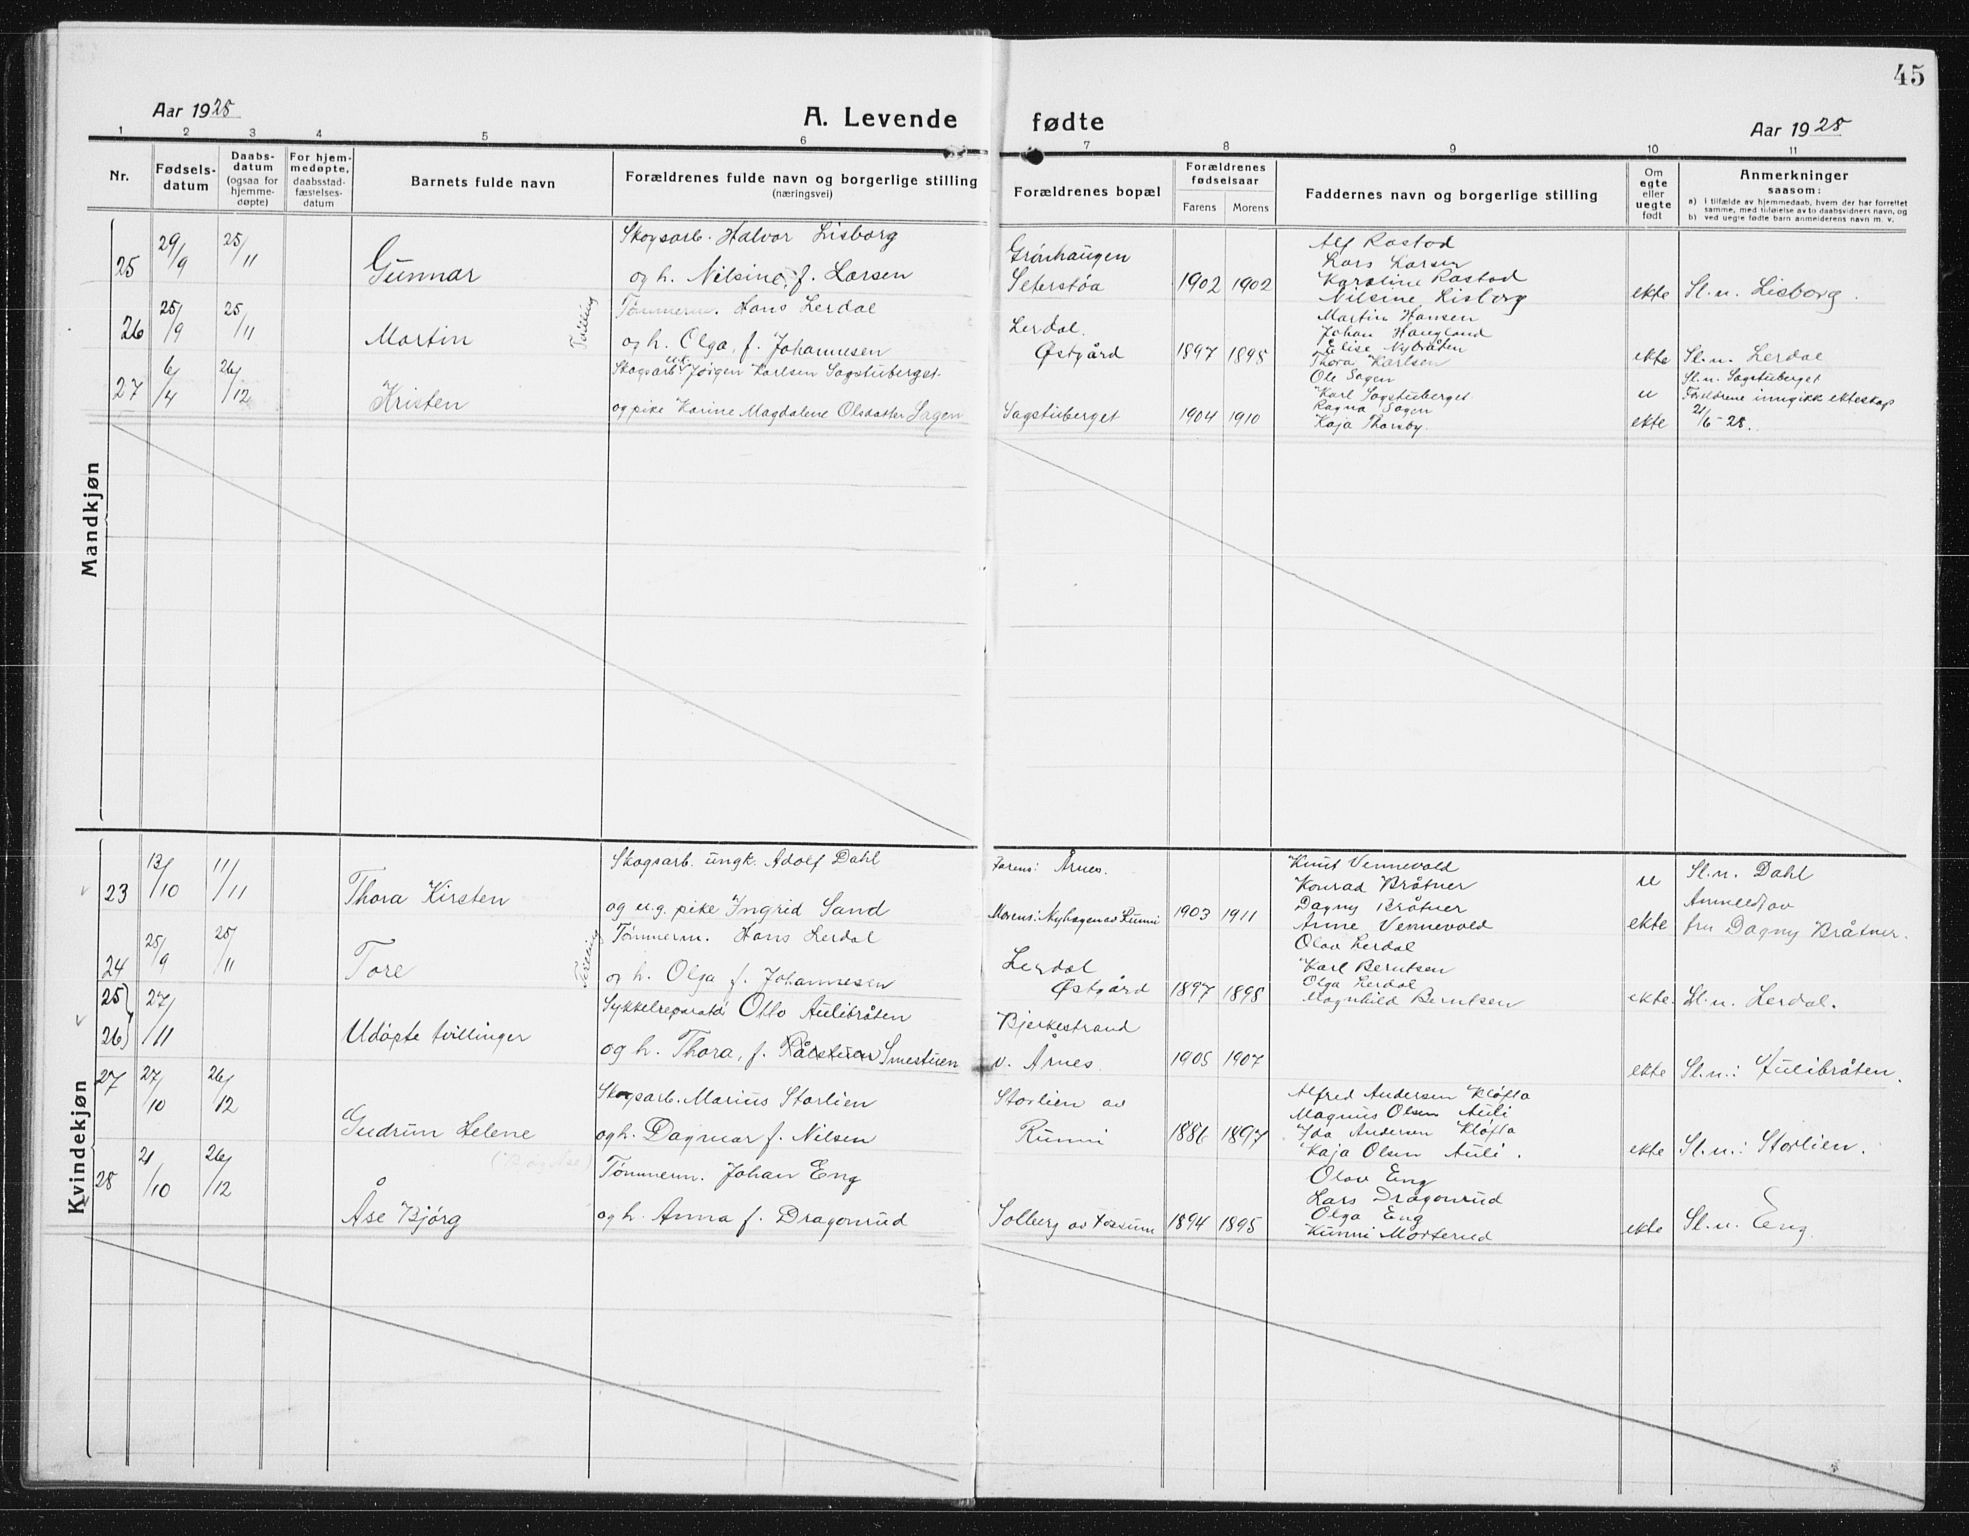 45
Aar 1928
A. Levende fødte
Aar 1928
1 2 3 4 5 6 7 8 9 10 11
Nr.
Fødsels-datum
Daabs-datum (ogsaa for hjemme-døpte)
For hjem-medøpte, daabsstad-fæstelses-datum
Barnets fulde navn
Forældrenes fulde navn og borgerlige stilling (næringsvei)
Forældrenes bopæl
Forældrenes fødselsaar
Farens Morens
Faddernes navn og borgerlige stilling
Om egte eller uegte født
Anmerkninger saasom:
a) i tilfælde av hjemmedaab, hvem der har forrettet samme, med tilføielse av to daabsvidners navn, og
b) ved uegte fødte barn anmelderens navn m. v.
Mandkjøn
25 29/9 25/11 Gunnar
Skogsarb. Halvor Lisborg
og h. Nilsine, f. Larsen
Grønhaugen
Seterstøa
1902 1902
Alf Rastad
Lars Larsen
Karoline Rastad
Nilsine Lisborg
ekte
Sl.n. Lisborg.
26 25/9 25/11 Martin
Tvilling
Tømmerm. Hans Lerdal
og h. Olga, f. Johannesen
Lerdal.
Østgård
1897 1898
Martin Hansen
Johan Haugland
Elise Nybråten
Thora Karlsen
ekte
Sl.n. Lerdal
27 6/4 26/12 Kristen
Skogsarb. u.k. Jørgen Karlsen Sagstuberget
og pike Karine Magdalene Olsdatter Sagen
Sagstuberget
1904 1910
Ole Sagen
Karl Sagstuberget
Ragna Sagen
Kaja Thorsby.
u
ekte
Sl.n. Sagstuberget
Foreldrene inngikk ekteskap
21/6-28.
Kvindekjøn
23 13/10 11/11 Thora Kirsten
Skogsarb. ungk. Adolf Dahl
og u.g. pike Ingrid Sand
Farens: Årnes.
Morens: Nyhagen av Runni
1903 1911
Knut Vennevold
Konrad Bråtner
Dagny Bråtner
Anne Vennevold
u
ekte
Sl.n. Dahl
Anmeldt av
fru Dagny Bråtner.
24 25/9 25/11 Tore
Tvilling
Tømmerm. Hans Lerdal
og h. Olga f. Johannesen
Lerdal
Østgård
1897 1898
Olav Lerdal
Karl Berntsen
Olga Lerdal
Magnhild Berntsen
ekte
Sl.n. Lerdal.
25)
26) 27/11 Udøpte tvillinger
Sykkelreparatør Otto Aulibråten
og h. Thora, f. Smestuen
Bjerkestrand
v. Årnes.
1905 1907
ekte
Sl.n.: Aulibråten.
27 27/10 26/12 Gudrun Helene
Skogsarb. Marius Storlien
og h. Dagmar f. Nilsen
Storlien av
Runni
1886 1897
Alfred Andersen Kløfta
Magnus Olsen Auli
Ida Andersen Kløfta
Kaja Olsen Auli.
ekte
Sl.n.: Storlien.
28 21/10 26/12 Åse Bjørg
Tømmerm. Johan Eng
og h. Anna f. Dragonrud
Solberg av Fossum
1894 1895
Olav Eng
Lars Dragonrud
Olga Eng
Kunni Morterud
ekte
Sl.n. Eng